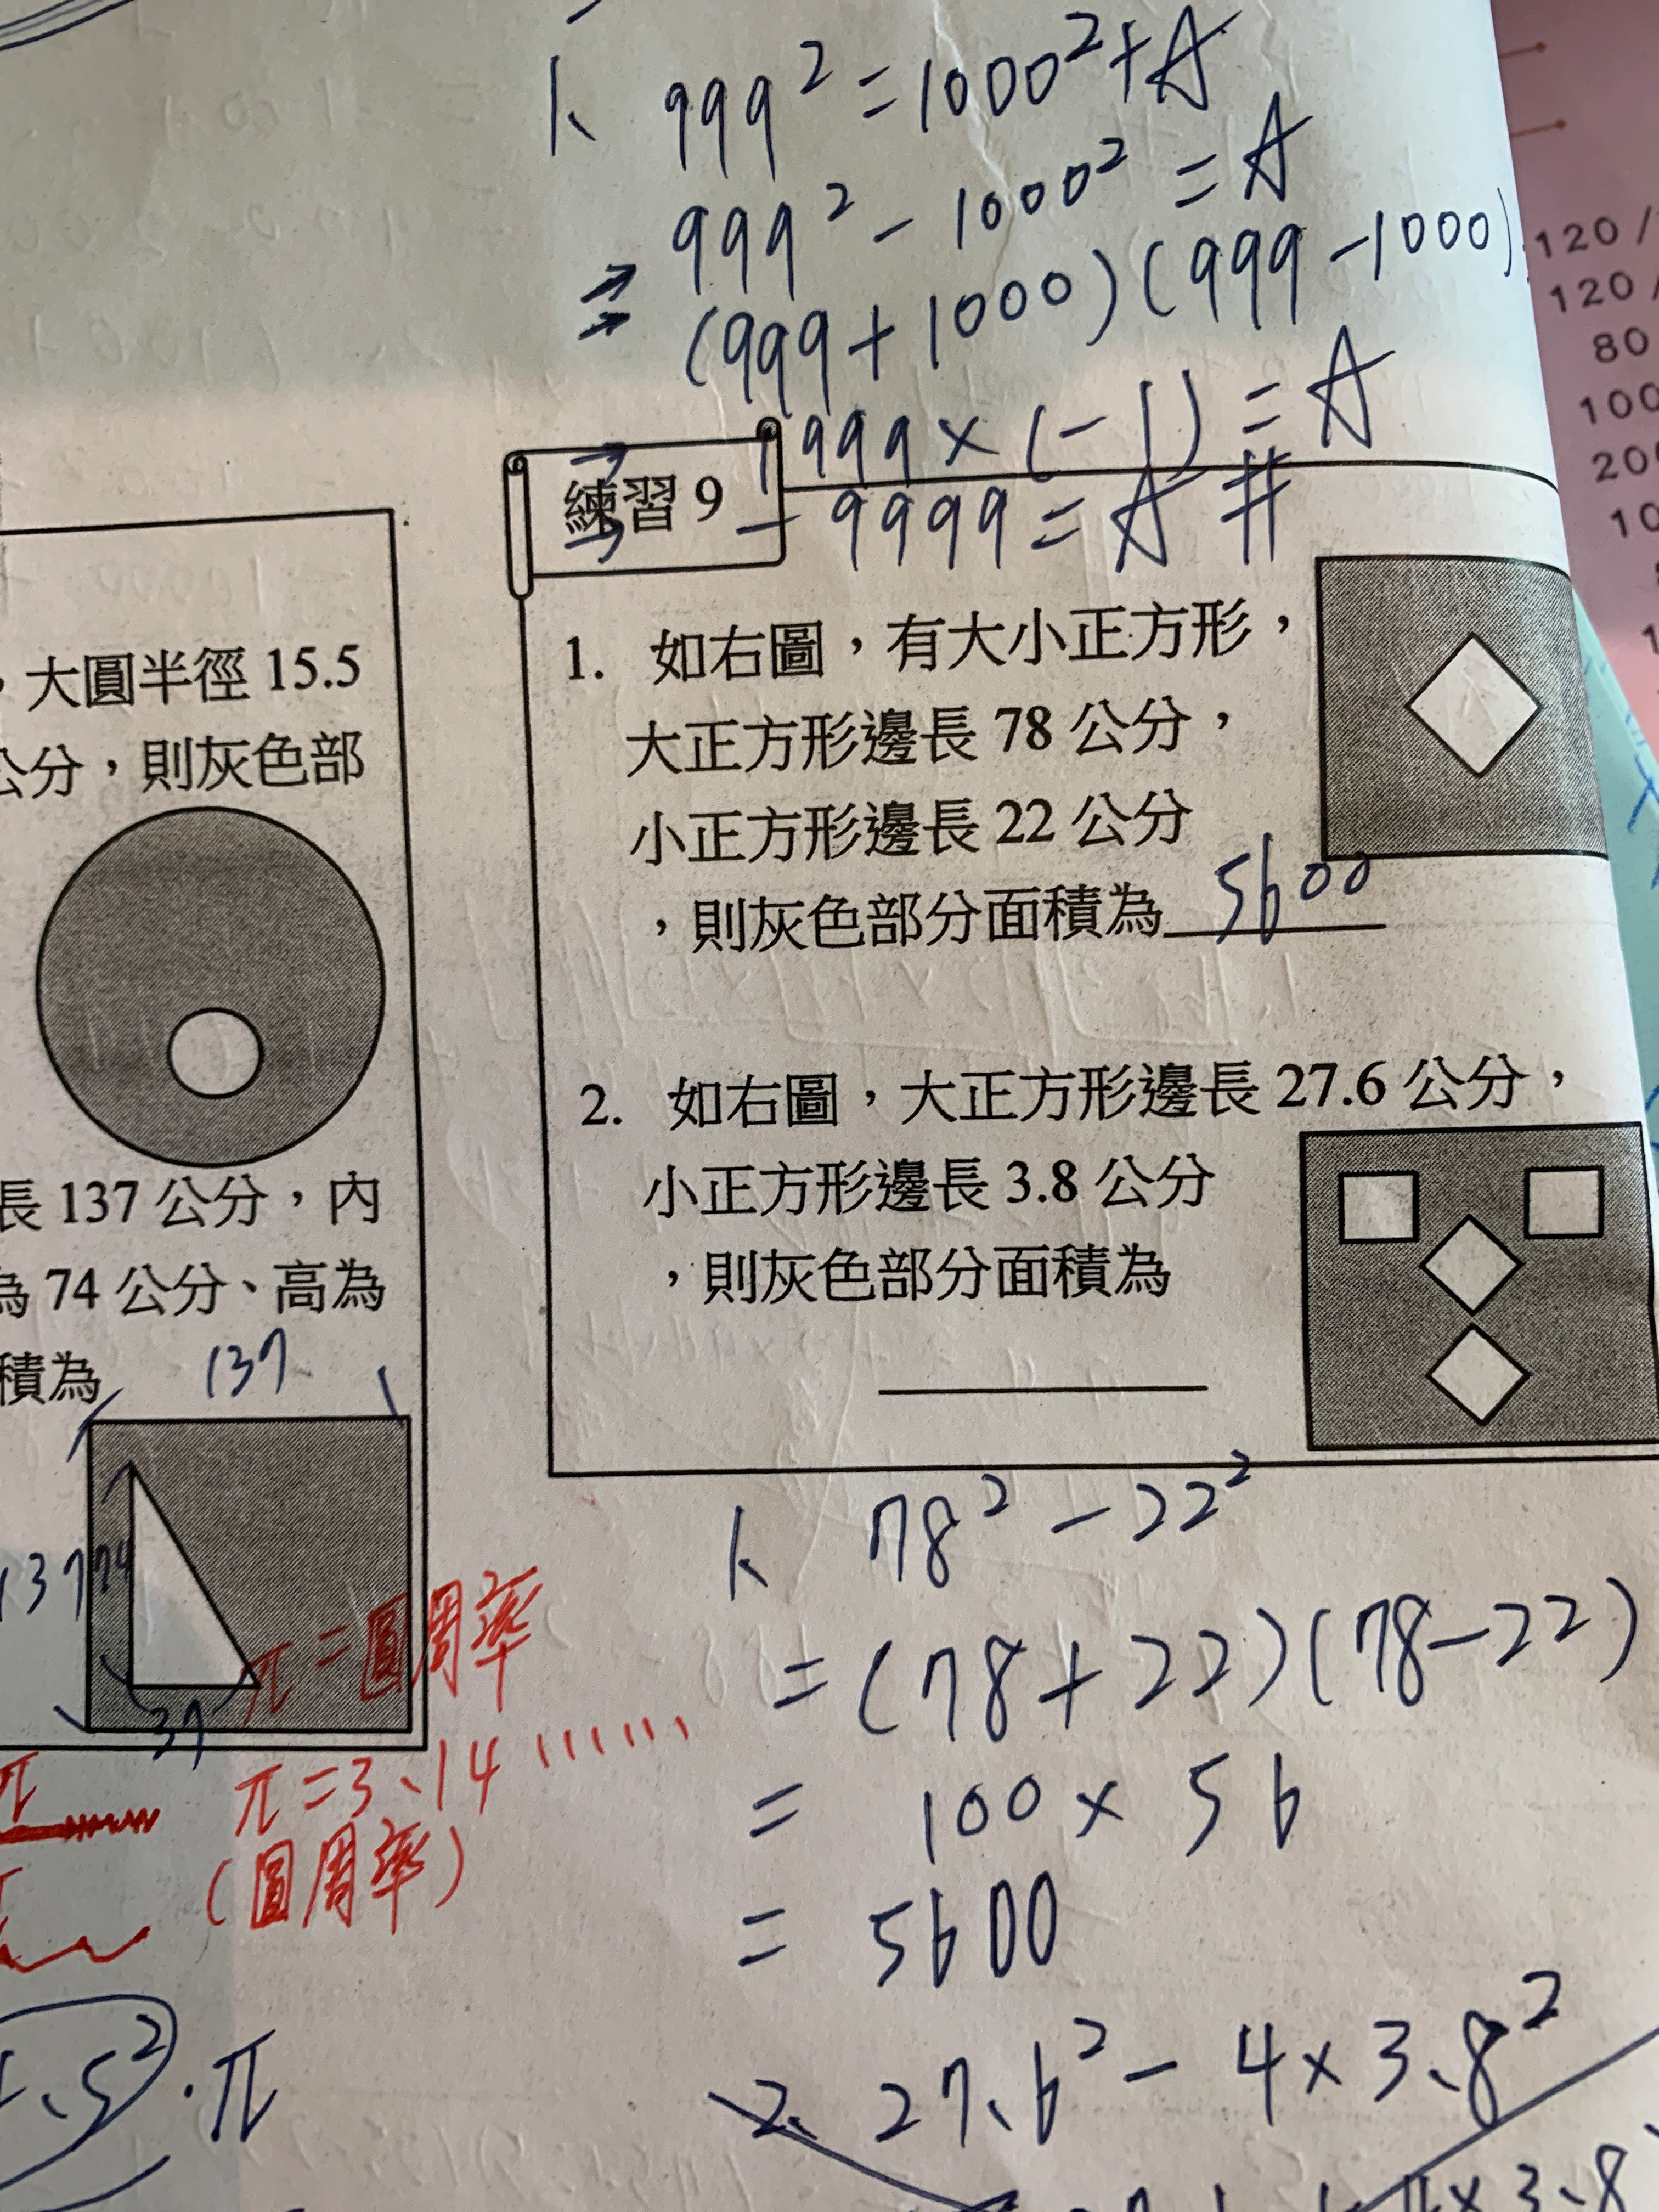 1、 999² = 1000² + A
999² - 1000² = A
⇒ (999 + 1000)(999 - 1000)
→ 1999 × (-1) = A
→ -9999 = A #
練習 9
1. 如右圖，有大小正方形，
大正方形邊長 78 公分，
小正方形邊長 22 公分
，則灰色部分面積為 5600
2. 如右圖，大正方形邊長 27.6 公分，
小正方形邊長 3.8 公分
，則灰色部分面積為
1、 78² - 22²
= (78 + 22)(78 - 22)
= 100 × 56
= 5600
2、 27.6² - 4 × 3.8²
×3.8
，大圓半徑 15.5
公分，則灰色部
長 137 公分，內
為 74 公分、高為
積為
137
137
74
37
π = 圓周率
π = 3、14
(圓周率)
π
.5² · π
120 /
120 /
80
100
200
10